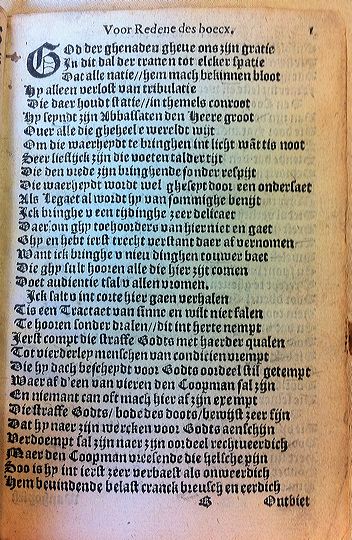 Voor Redene des boecx. 1
GOd der ghenaden gheue ons zijn gratie
In dit dal der tranen tot elcker spatie
Dat alle natie//hem mach bekinnen bloot
Hy alleen verlost van tribulatie
Die daer houdt statie//in themels conroot
Hy seyndt zijn Abbassaten den Heere groot
Ouer alle die gheheele wereldt wijt
Om die waerheydt te bringhen int licht wāt tis noot
Seer lieflijck zijn die voeten talder tijt
Die den vrede zijn bringhende sonder respijt
Die waerheydt wordt wel gheseyt door een ondersaet
Als Legaet al wordt hy van sommighe benijt
Ick bringhe v een tijdinghe zeer delicaet
Daer om ghy toehoorders van hier niet en gaet
Ghy en hebt ierst trecht verstant daer af vernomen
Want ick bringhe v nieu dinghen touwer baet
Die ghy sult hooren alle die hier zijt comen
Doet audientie tsal v allen vromen.
Ick salt v int corte hier gaen verhalen
Tis een Tractaet van sinne en wilt niet falen
Te hooren sonder dralen//dit int herte nempt
Ierst compt die straffe Godts met haerder qualen
Tot vierderley menschen van condicien vrempt
Die hy dach bescheydt voor Godts oordeel stif getempt
Waer af d'een van vieren den Coopman sal zijn
En niemant can oft mach hier af zijn exempt
Die straffe Godts/ bode des doots/ bewijst zeer fijn
Dat hy naer zijn wercken voor Godts aenschijn
Verdoempt sal zijn naer zijn oordeel rechtueerdich
Maer den Coopman vreesende die helsche pijn
Soo is hy int ierst zeer verbaest als onweerdich
Hem beuindende belast cranck breusch en eerdich
B Ontbiet